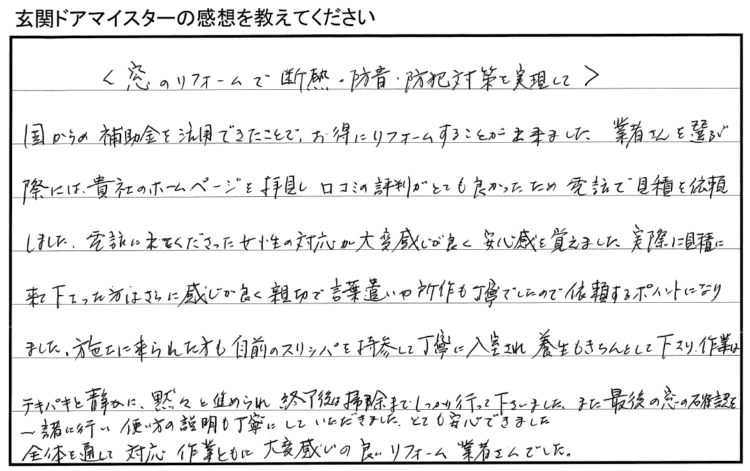 玄関ドアマイスターの感想を教えてください
〈窓のリフォームで断熱・防音・防犯対策を実現して〉
国からの補助金を活用できたことで、お得にリフォームすることが出来ました。業者さんを選ぶ
際には、貴社のホームページを拝見し口コミの評判がとても良かったため電話で見積を依頼
しました。電話に出てくださった女性の対応が大変感じが良く安心感を覚えました。実際に見積に
来て下さった方はさらに感じが良く親切で言葉遣いや所作も丁寧でしたので依頼するポイントになり
ました。施工に来られた方も自前のスリッパを持参して丁寧に入室され養生もきちんとして下さり、作業は
テキパキと静かに、黙々と進められ終了後は掃除までしっかり行って下さいました。また最後の窓の確認を
一緒に行い使い方の説明も丁寧にしていただきました。とても安心できました
全体を通して対応作業ともに大変感じの良いリフォーム業者さんでした。